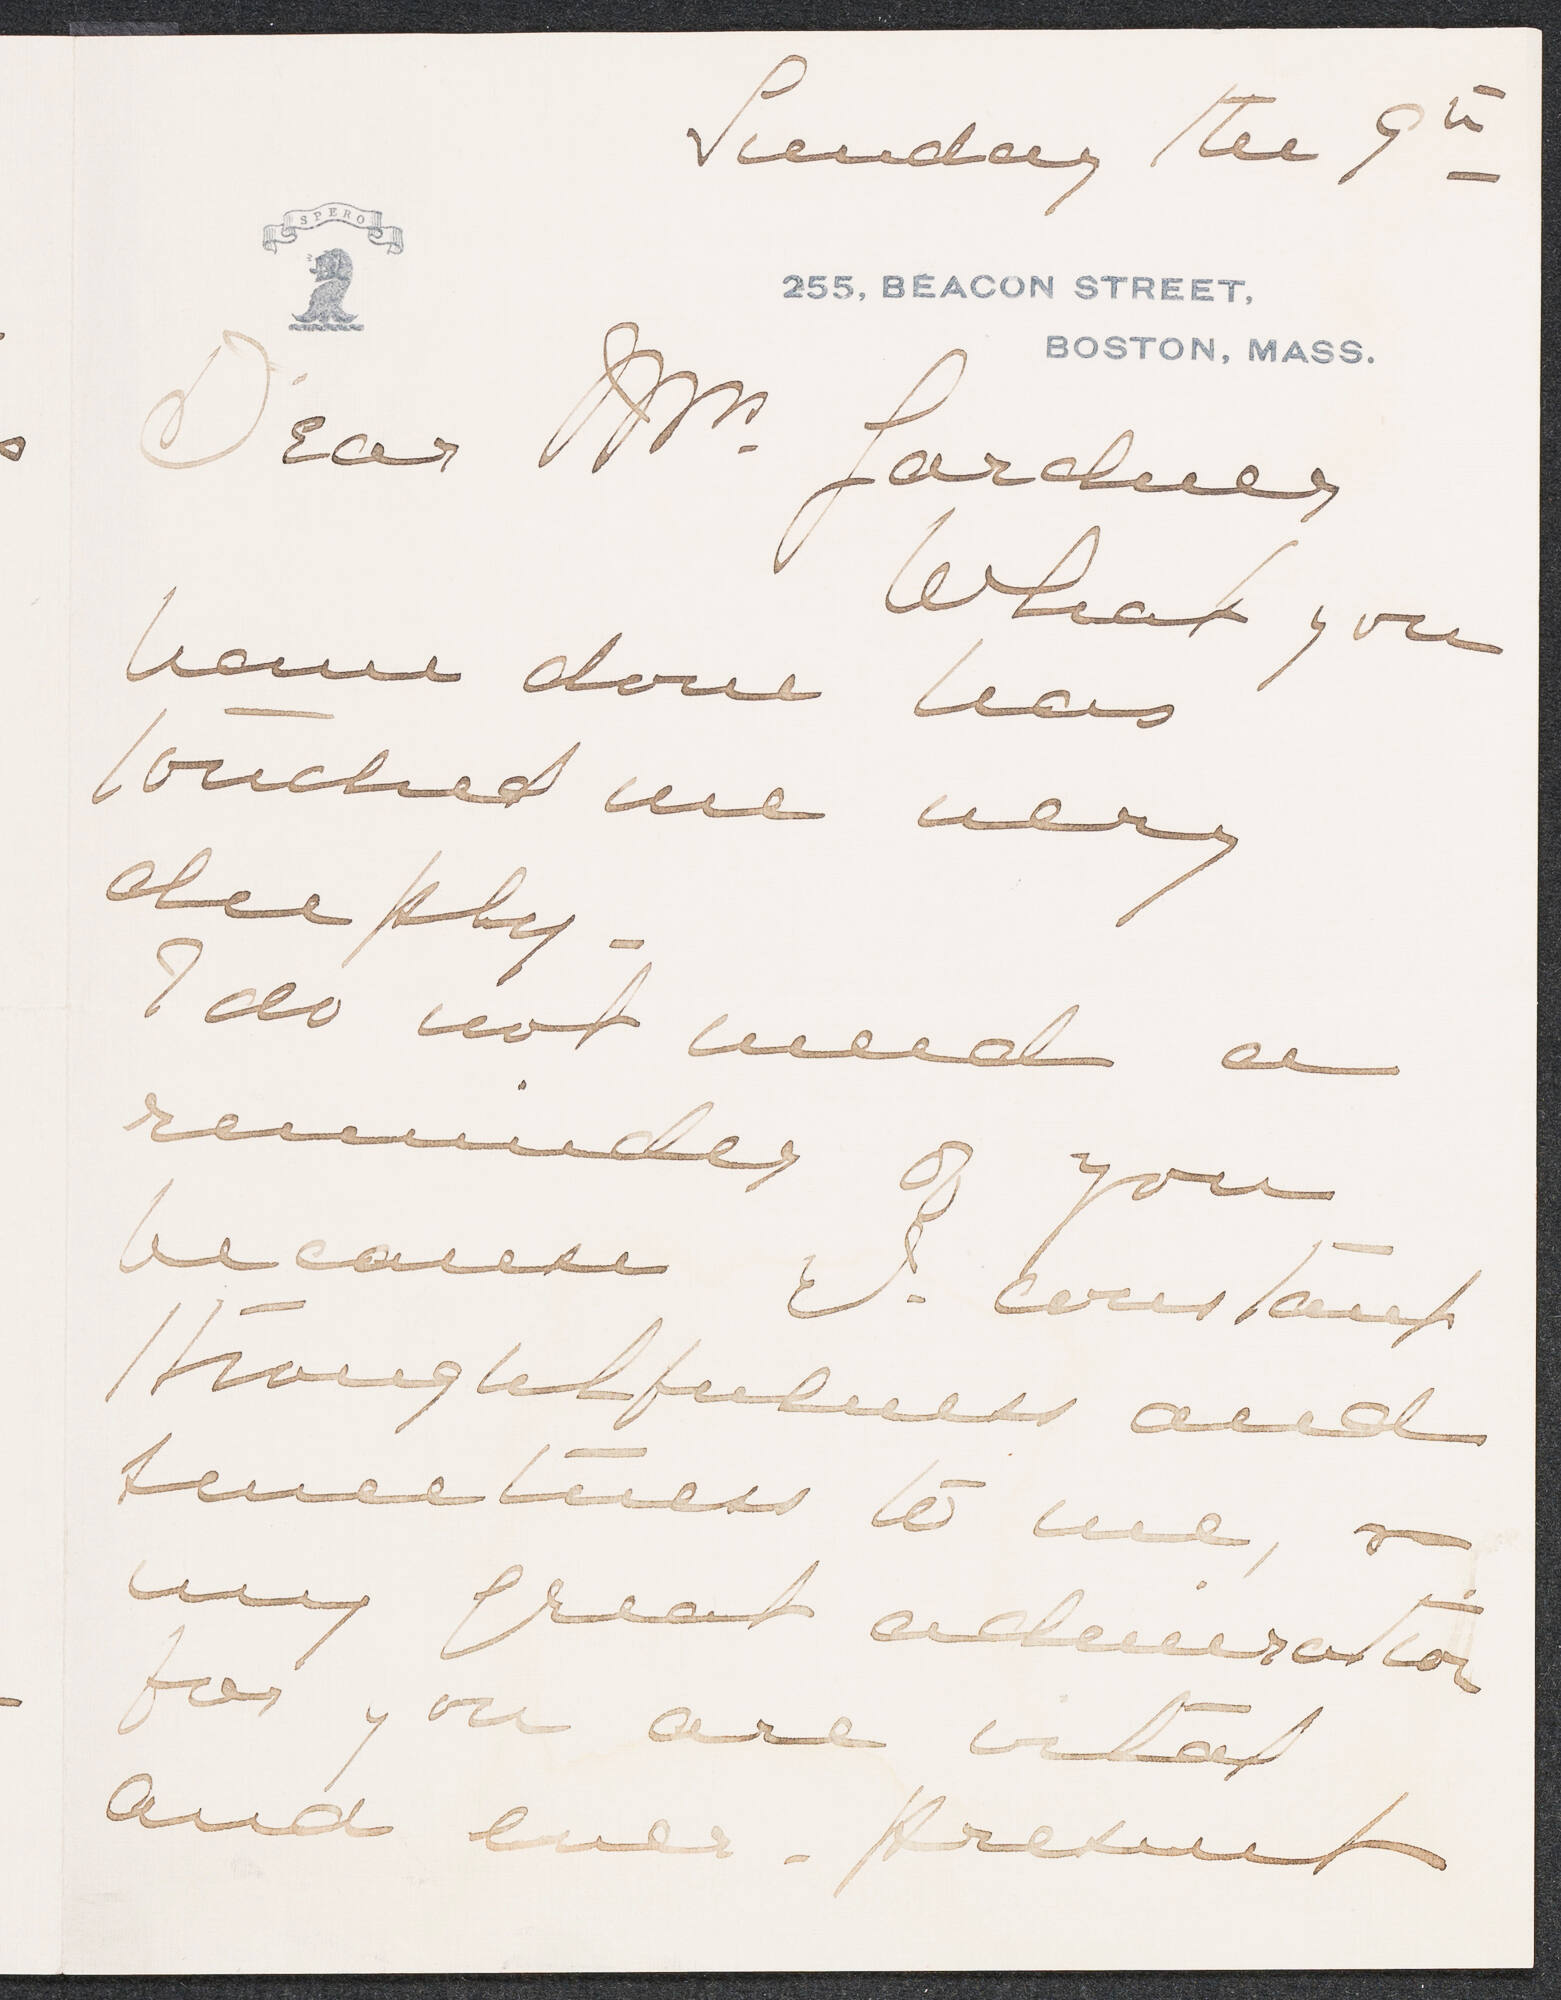 Sunday the 9th
SPERO
255, BEACON STREET,
BOSTON, MASS.
Dear Mrs. Gardner
What you
have done has
touched me very
deeply -
I do not need a
reminder of you
because yr. constant
thoughtfulness and
sweetness to me, &
my great admiration
for you are vital
and ever-present